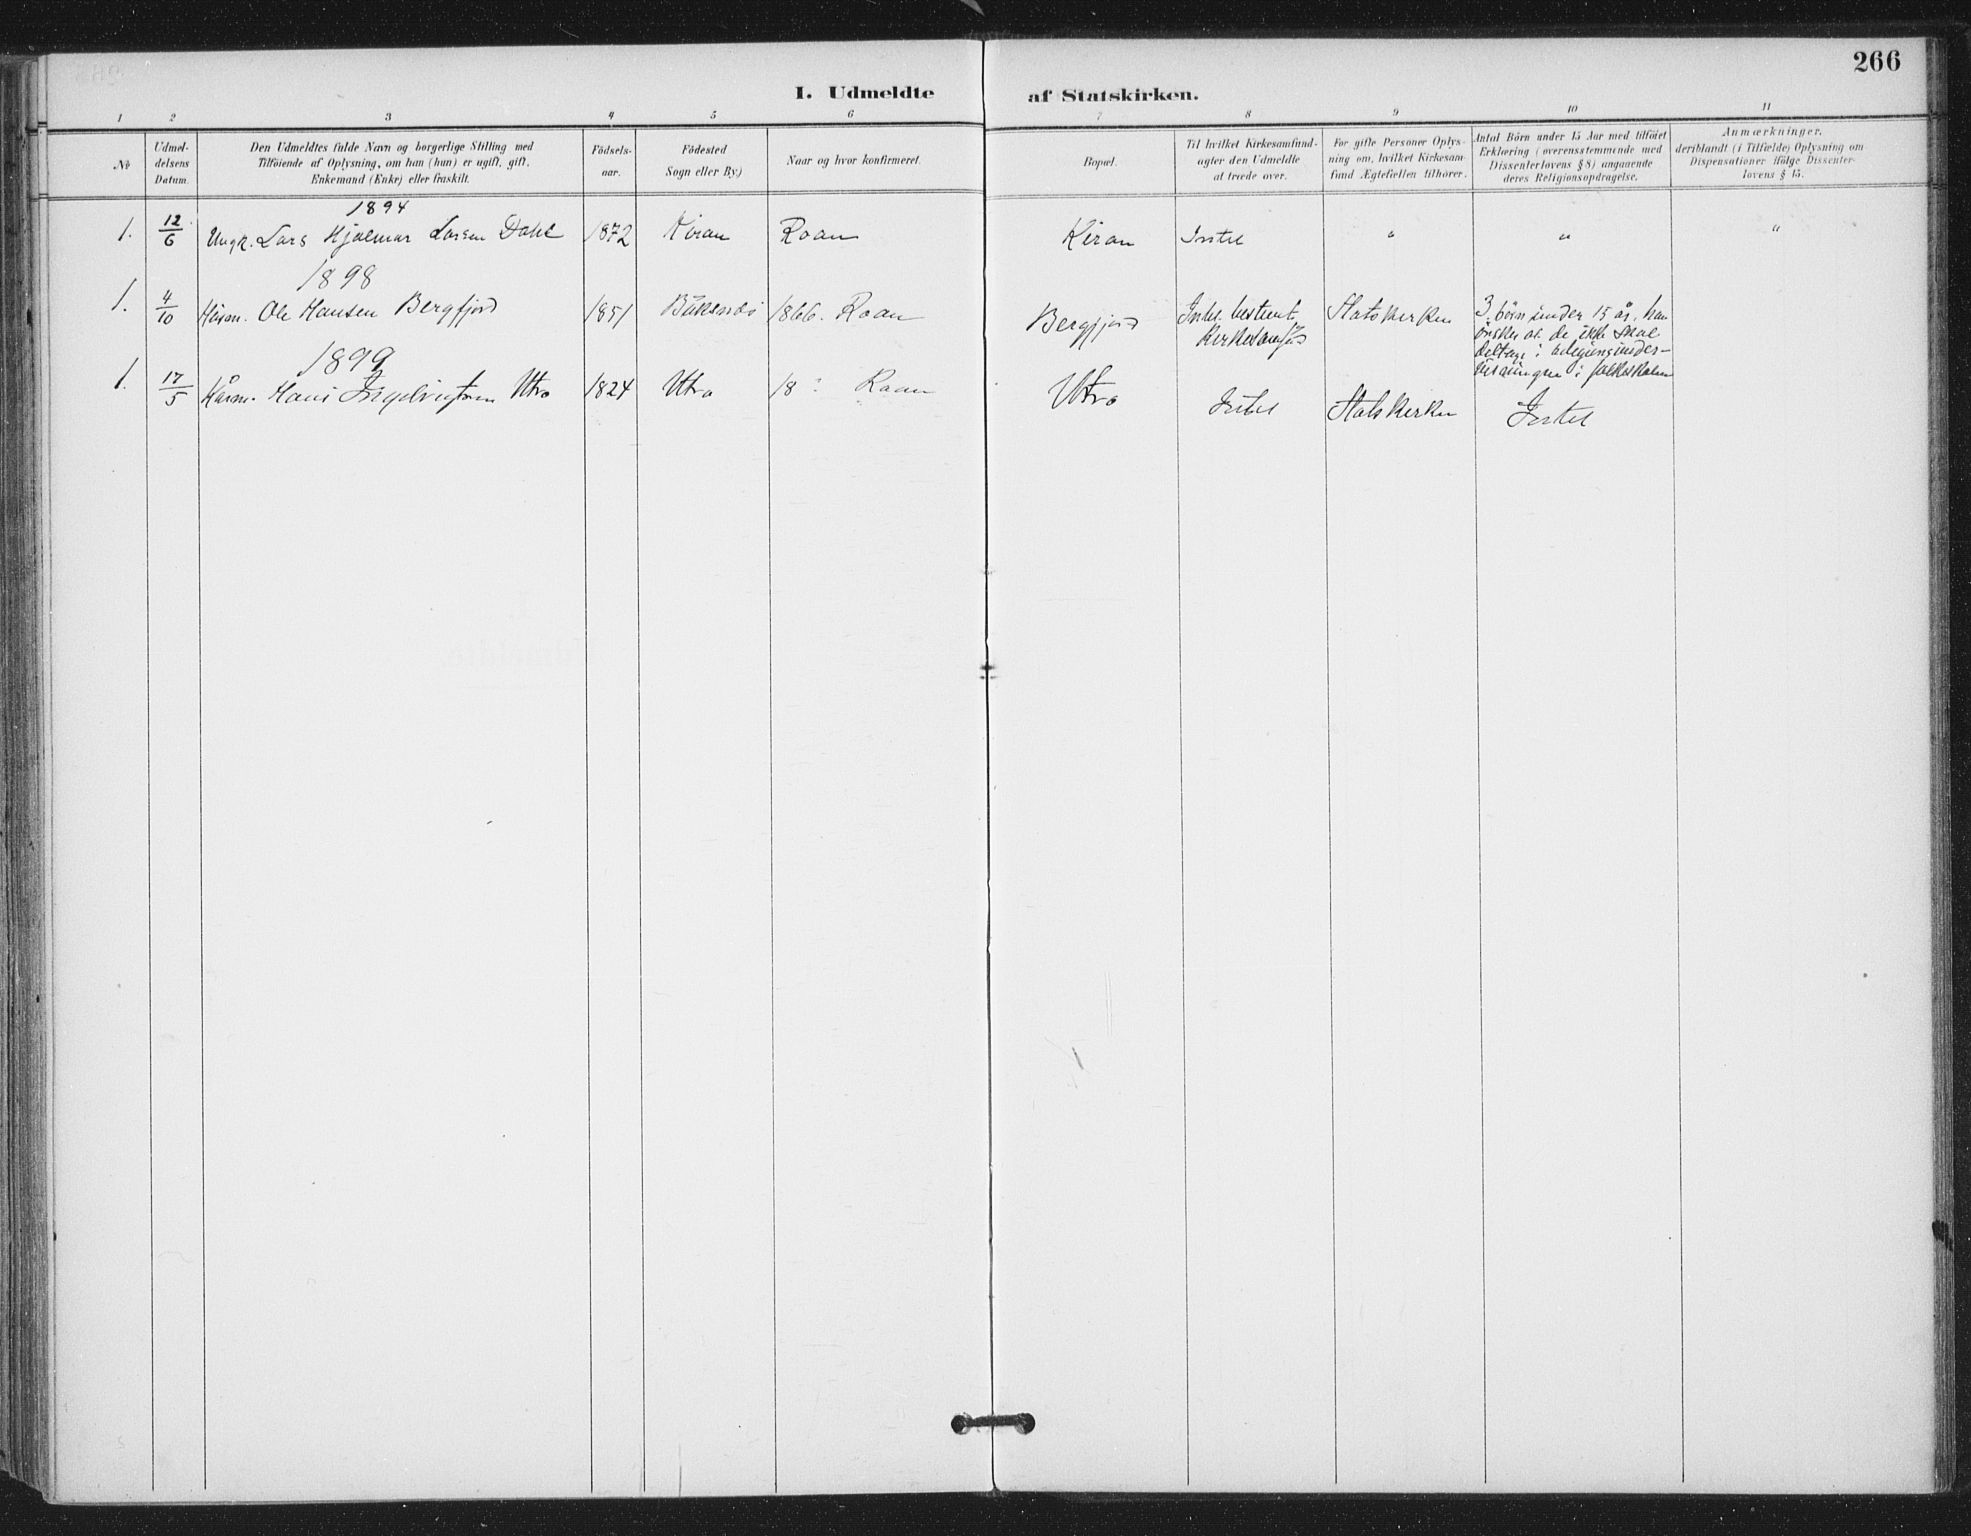 266
I. Udmeldte af Statskirken.
1 2 3 4 5 6 7 8 9 10 11
No
Udmel-
delsens
Datum.
Den Udmeldtes fulde Navn og borgerlige Stilling med
Tilföiende af Oplysning, om han (hun) er ugift, gift,
Enkemand (Enke) eller fraskilt.
Födsels-
aar.
Födested
Sogn eller By)
Naar og hvor konfirmeret.
Bopæl.
Til hvilket Kirkesamfund-
agter den Udmeldte
at træde over.
For gifte Personer Oplys-
ning om, hvilket Kirkesam-
fund Ægtefællen tilhörer.
Antal Börn under 15 Aar med tilföiet
Erklæring (overensstemmende med
Dissenterlovens § 8) angaaende
deres Religionsopdragelse.
Anmærkninger,
deriblandt (i Tilfælde) Oplysning om
Dispensationer ifölge Dissenter-
lovens § 15.
1894
1. 12/6 Ungk. Lars Hjalmar Larsen Dahl 1872 Kiran Roan Kiran Intet " " "
1898
1. 4/10 Husm. Ole Hansen Bergfjord 1851 1866. Roan Bergfjord Intet bestemt Kirkesamfund Statskirken 3 börn under 15 år, han
önsker at de ikke skal
deltage i religionsunder-
visningen i folkeskolen
1899
1. 17/5 Kårm. Hans Utro 1824 Utro 18 ? Roan Utro Intet Statskirken Intet